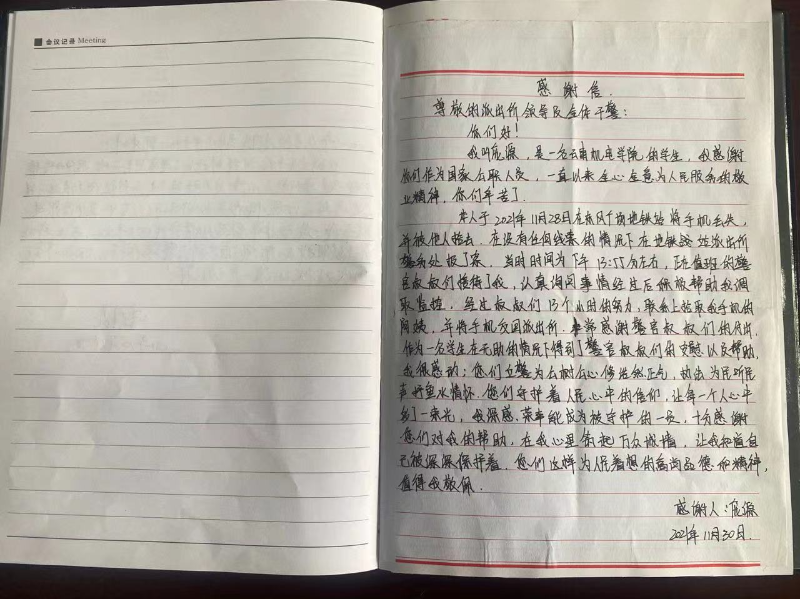 会议记录 Meeting
感谢信.
尊敬的派出所领导及全体干警:
你们好!
我叫源,是一名云南机电学院的学生,我感谢
你们作为国家公职人员,一直以来全心全意为人民服务的敬
业精神,你们辛苦了.
本人于2021年11月28日在东风广场地铁站将手机丢失,
并被他人捡去.在没有任何线索的情况下在地铁站 派出所
警务处报了案.当时时间为下午13:55分左右,正在值班的警
官叔叔们接待了我,认真询问事情经过后积极帮助我调
取监控,经过叔叔们13个小时的努力,联系上捡我手机的
阿姨,并将手机交回派出所.非常感谢警官叔叔们的付出,
作为一名学生在无助的情况下得到了警官叔叔们的安慰以及帮助,
我很感动;您们立警为公树公心修浩然正气,执法为民听民
声好鱼水情怀.您们守护着人民心中的信仰,让每一个人心中
多了一束光,我深感荣幸能成为被守护的一员,十分感谢
您们对我的帮助,在我心里筑起万众城墙,让我知道自
己被深深保护着,您们这样为人民着想的高尚品德和精神,
值得我敬佩.
感谢人:源
2021年11月30日.